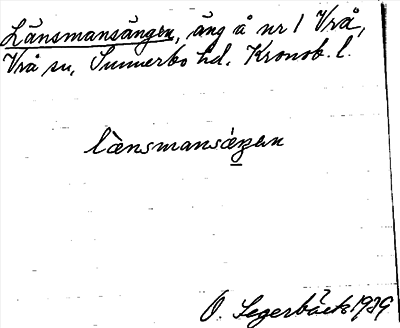 Länsmansängen, äng å nr 1 Vrå,
Vrå sn, Sunnerbo hd. Kronob. l.
lànsmansáŋen
O. Segerbäck 1939